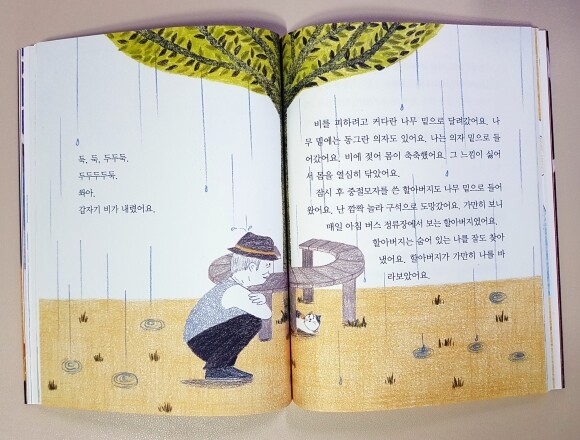 둑, 둑, 두두둑.
두두두두둑.
쏴아.
갑자기 비가 내렸어요.
비를 피하려고 커다란 나무 밑으로 달려갔어요. 나
무 밑에는 동그란 의자도 있어요. 나는 의자 밑으로 들
어갔어요. 비에 젖어 몸이 축축했어요. 그 느낌이 싫어
서 몸을 열심히 닦았어요.
잠시 후 중절모자를 쓴 할아버지도 나무 밑으로 들어
왔어요. 난 깜짝 놀라 구석으로 도망갔어요. 가만히 보니
매일 아침 버스 정류장에서 보는 할아버지였어요.
할아버지는 숨어 있는 나를 잘도 찾아
냈어요. 할아버지가 가만히 나를 바
라보았어요.